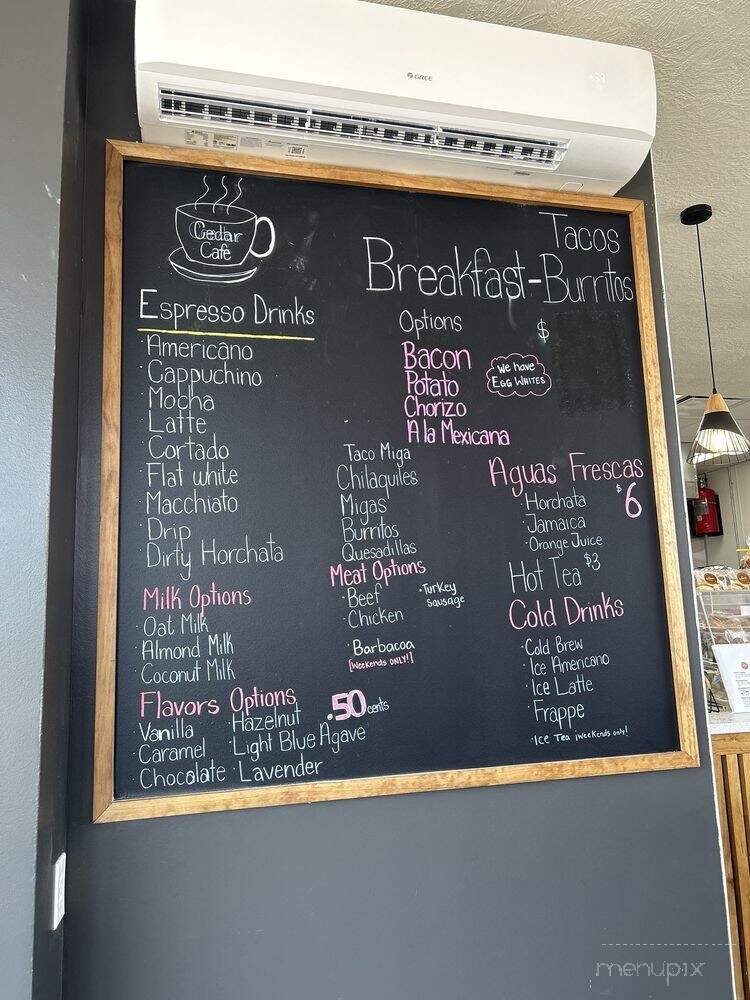 GREE
Cedar
Cafe
Espresso Drinks
· Americano
· Cappuchino
· Mocha
· Latte
· Cortado
· Flat white
· Macchiato
· Drip
· Dirty Horchata
Milk Options
· Oat Milk
· Almond Milk
· Coconut Milk
Flavors Options .50 cents
· Vanilla · Hazelnut
· Caramel · Light Blue Agave
· Chocolate · Lavender
Tacos
Breakfast-Burritos
Options $
Bacon
Potato
Chorizo
A la Mexicana
We have
EGG WHITES
Taco Miga
Chilaquiles
Migas
Burritos
Quesadillas
Meat Options
· Beef
· Chicken
· Turkey
Sausage
· Barbacoa
[Weekends ONLY!]
Aguas Frescas
$6
· Horchata
· Jamaica
· Orange Juice
Hot Tea $3
Cold Drinks
· Cold Brew
· Ice Americano
· Ice Latte
· Frappe
· Ice Tea (weekends only!
menupix